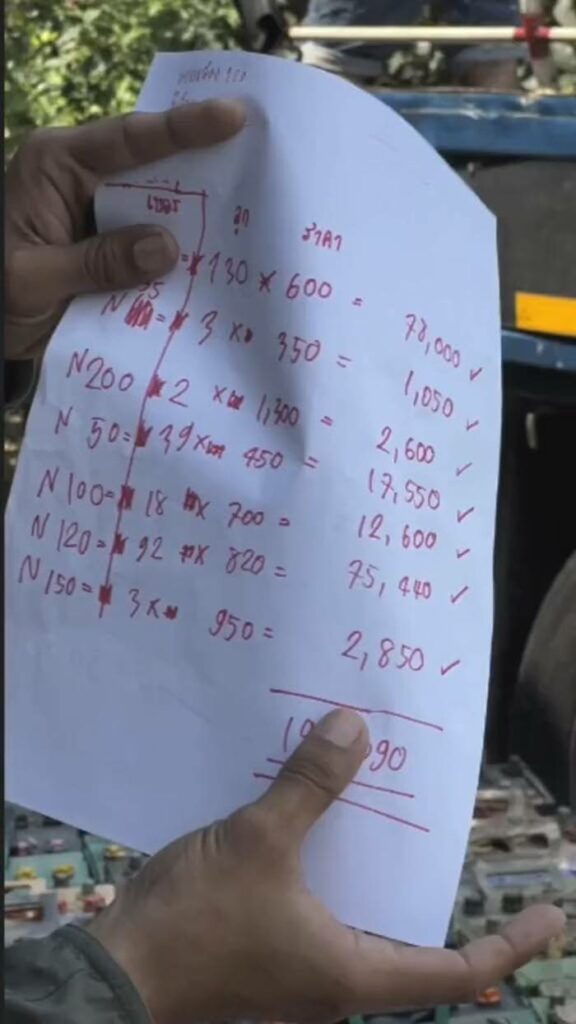 เบอร์ ลูก ราคา
= 130 × 600 = 78,000 ✓
N 35 = 3 × 350 = 1,050 ✓
N200 2 × 1,300 = 2,600 ✓
N 50 = 39 × 450 = 17,550 ✓
N 100 = 18 × 700 = 12,600 ✓
N 120 = 92 × 820 = 75,440 ✓
N 150 = 3 × 950 = 2,850 ✓